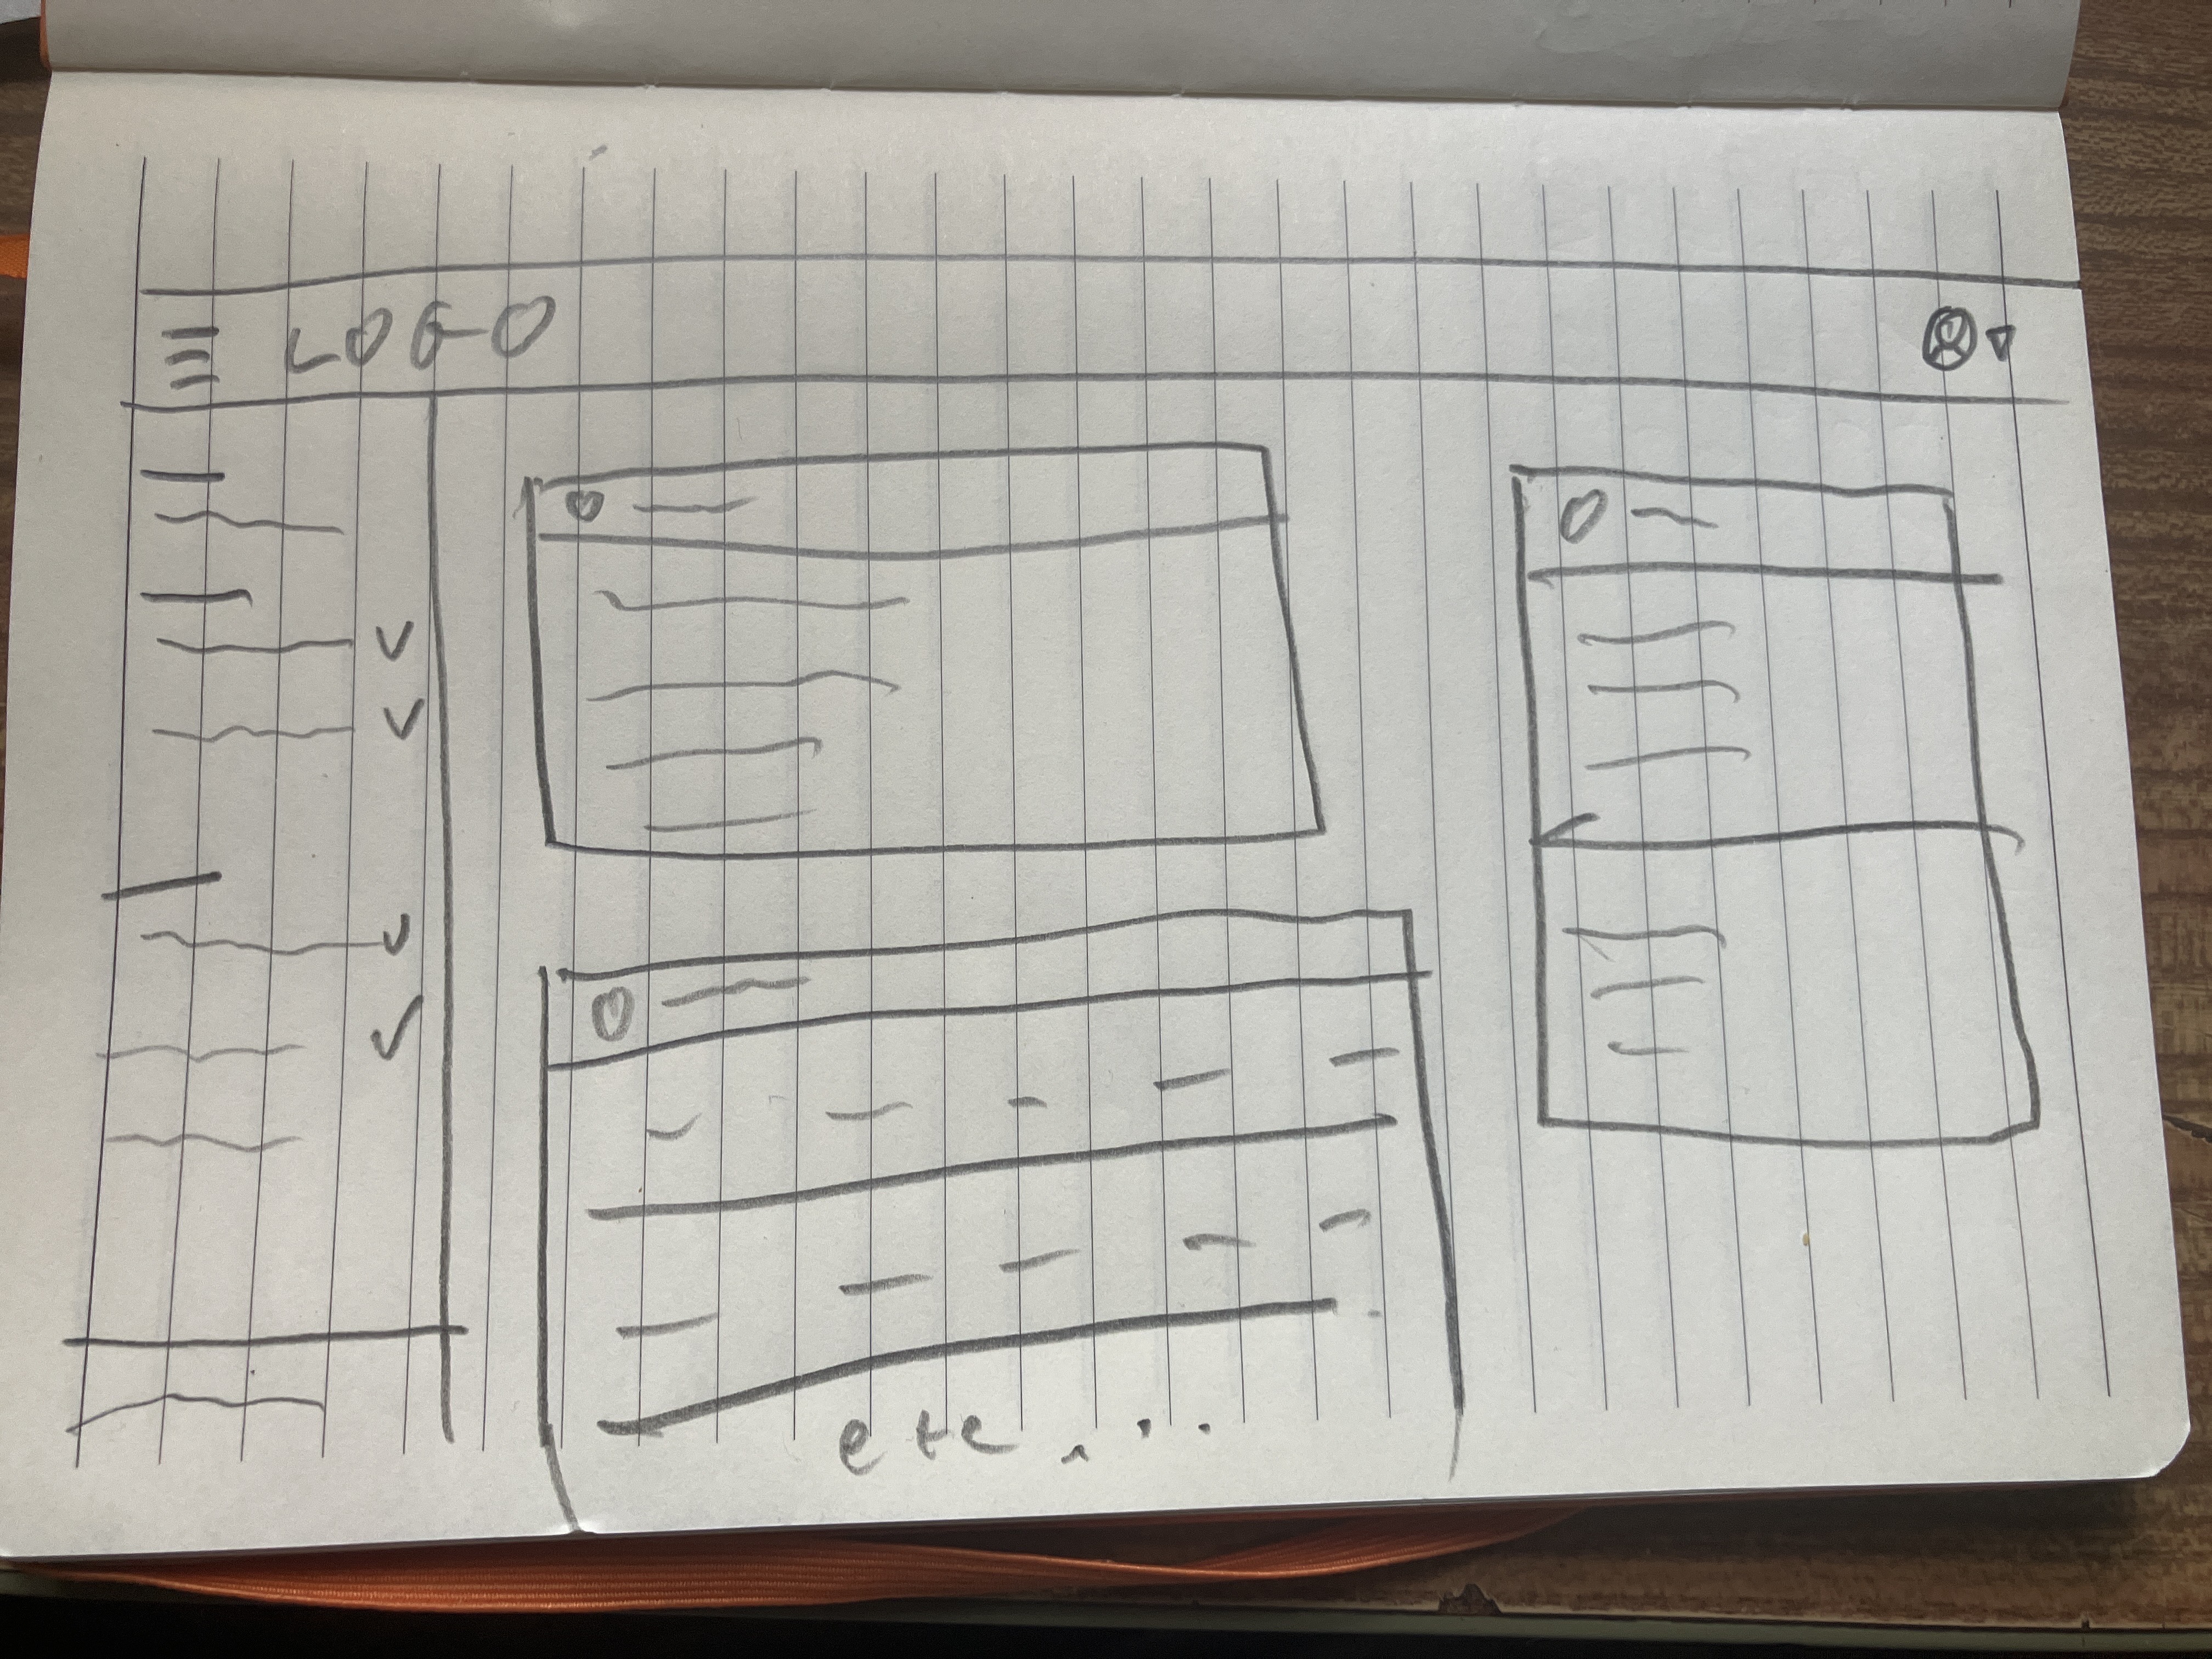 LOGO
etc....